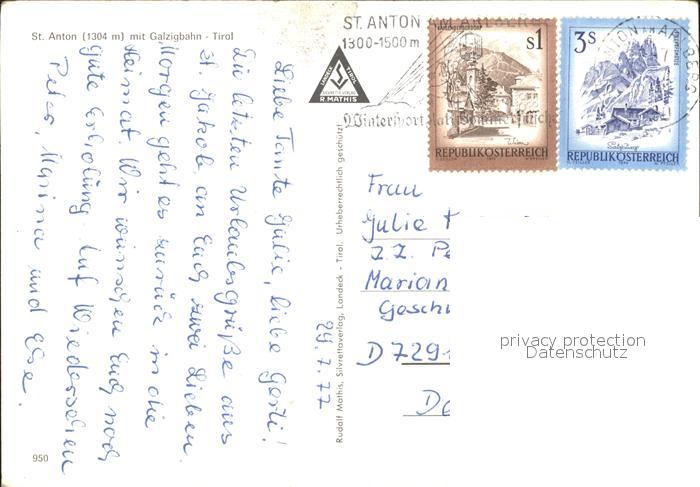 St. Anton (1304 m) mit Galzigbahn - Tirol
Liebe Tante Julie, liebe Gerti!
Die letzten Urlaubsgrüße aus
St. Jakob an Euch zwei Lieben.
Morgen geht es zurück in die
Heimat. Wir wünschen Euch noch
gute Erholung. Auf Wiedersehen
Peter, Marina und Else.
29.7.77
950
Rudolf Mathis, Silvrettaverlag, Landeck - Tirol. Urheberrechtlich geschützt!
R. MATHIS
ST. ANTON AM ARLBERG
1300-1500 m
Wintersport
s1
REPUBLIK ÖSTERREICH
3s
REPUBLIK ÖSTERREICH
Frau
Julie
z.Z.
Marian
Gesch
D 729
privacy protection
Datenschutz